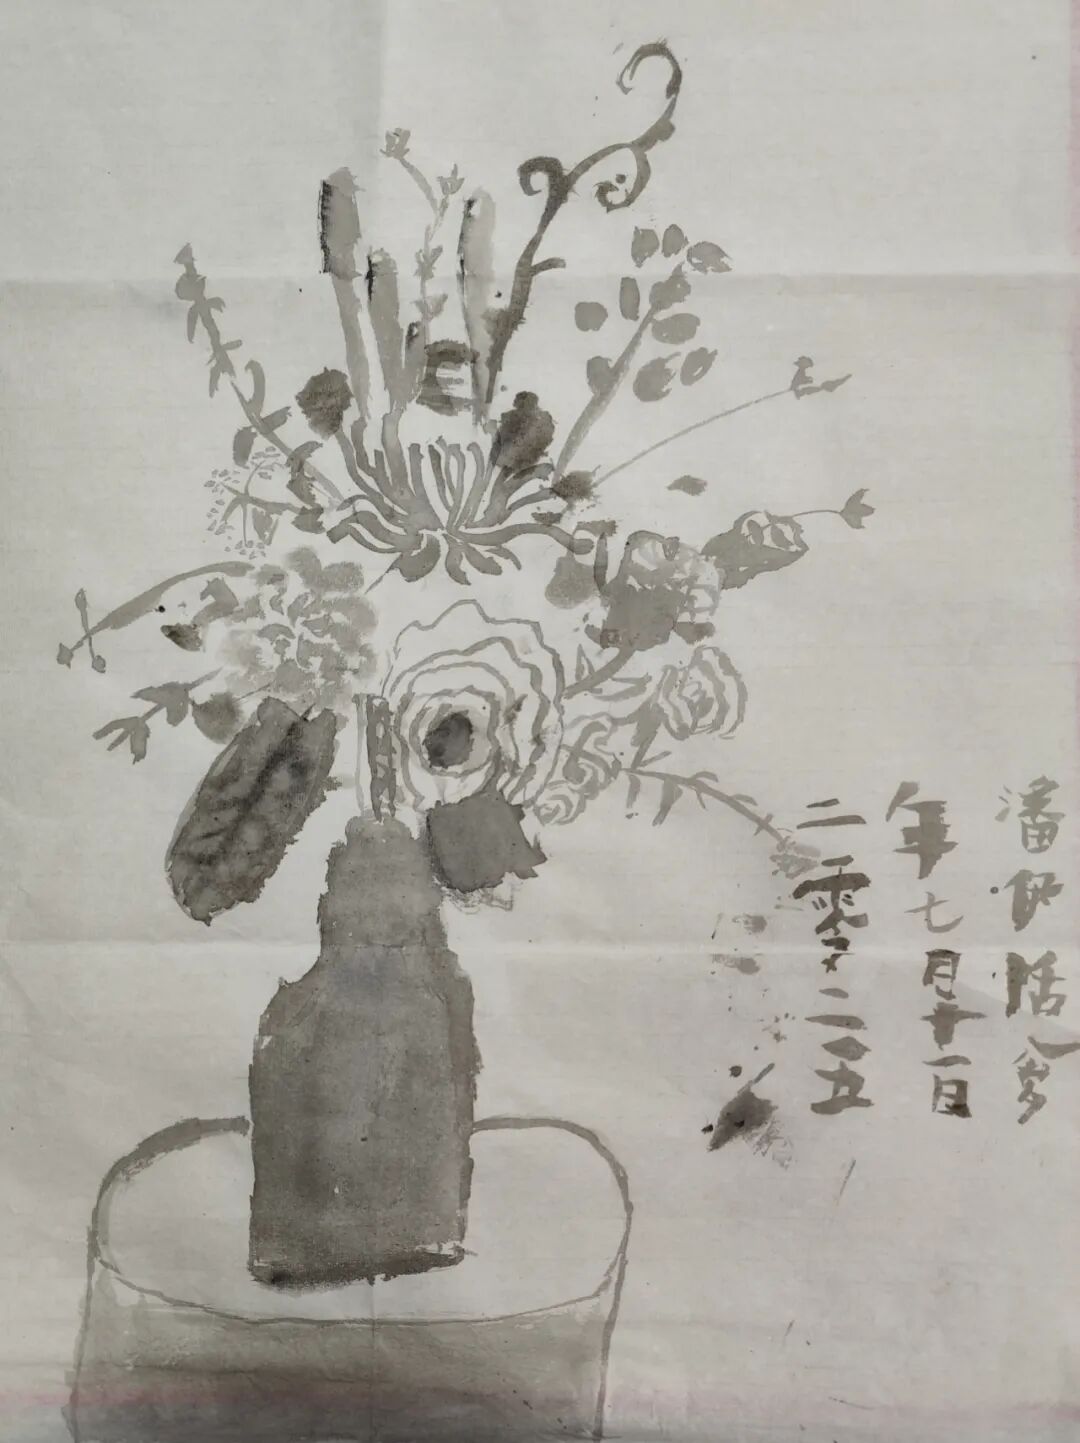 二零二五
年七月十一日
潘伊恬八岁